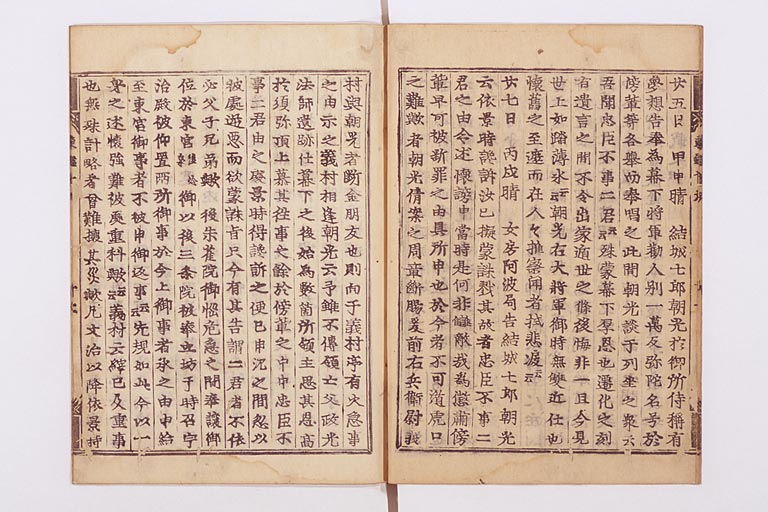 廿五日 甲申晴 結城七郎朝光於御所侍稱有
夢想告奉為幕下將軍勸人別一萬反弥陀名号於
傍輩等各擧而奉唱之此間朝光談于列座之衆云
吾聞忠臣不事二君云々殊蒙幕下厚恩也遷化之刻
有遺言之間不令出家遁世之條後悔非一且今見
世上如踏薄氷云々朝光右大將軍御時無雙近仕也
懷舊之至遮而在人々推察聞者拭悲涙云々
廿七日 丙戌晴 女房阿波局告結城七郎朝光
云依景時讒訴汝已擬蒙誅戮其故者忠臣不事二
君之由令述懷謗申當時是何非讎敵哉為懲肅傍
輩早可被斷罪之由具所申也於今者不可遁虎口
之難歟者朝光倩案之周章斷膓爰前右兵衛尉義
村與朝光者斷金朋友也則向于義村宅有火急事
之由示之義村相逢朝光云予雖不傳領亡父政光
法師遺跡仕幕下之後始為數箇所領主思其恩高
於須弥頂上慕其往事之餘於傍輩之中申忠臣不
事二君由之處景時得讒訴之便已申沉之間忽以
被處逆惡而欲蒙誅旨只今有其告謂二君者不依
必父子兄弟歟 後朱雀院御惱危急之間奉讓御
位於東宮 御以後三条院被奉立坊于時召宇
治殿被仰置兩所御事於今上御事者承之由申給
至東宮御事者不被申御返事云々先規如此今以一
身之述懷強難被處重科歟云々義村云縡已及重事
也無殊計略者曾難攘其災歟凡文治以降依景時